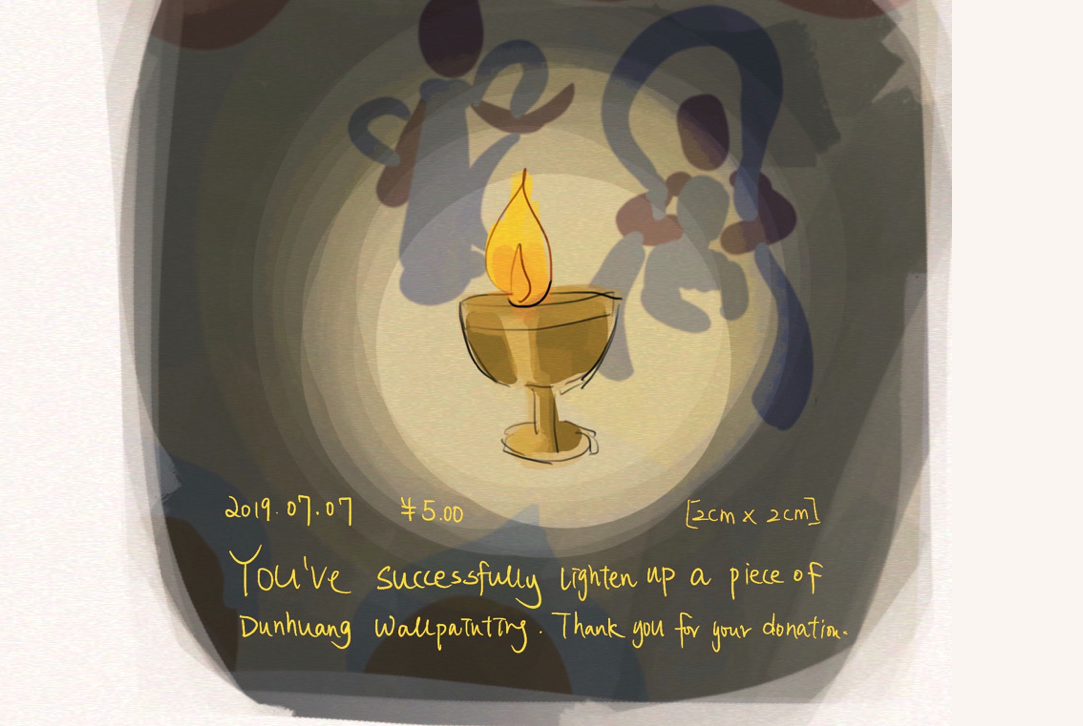 2019.07.07 ¥5.00 [2cm x 2cm]
You've successfully lighten up a piece of
Dunhuang Wallpainting. Thank you for your donation.